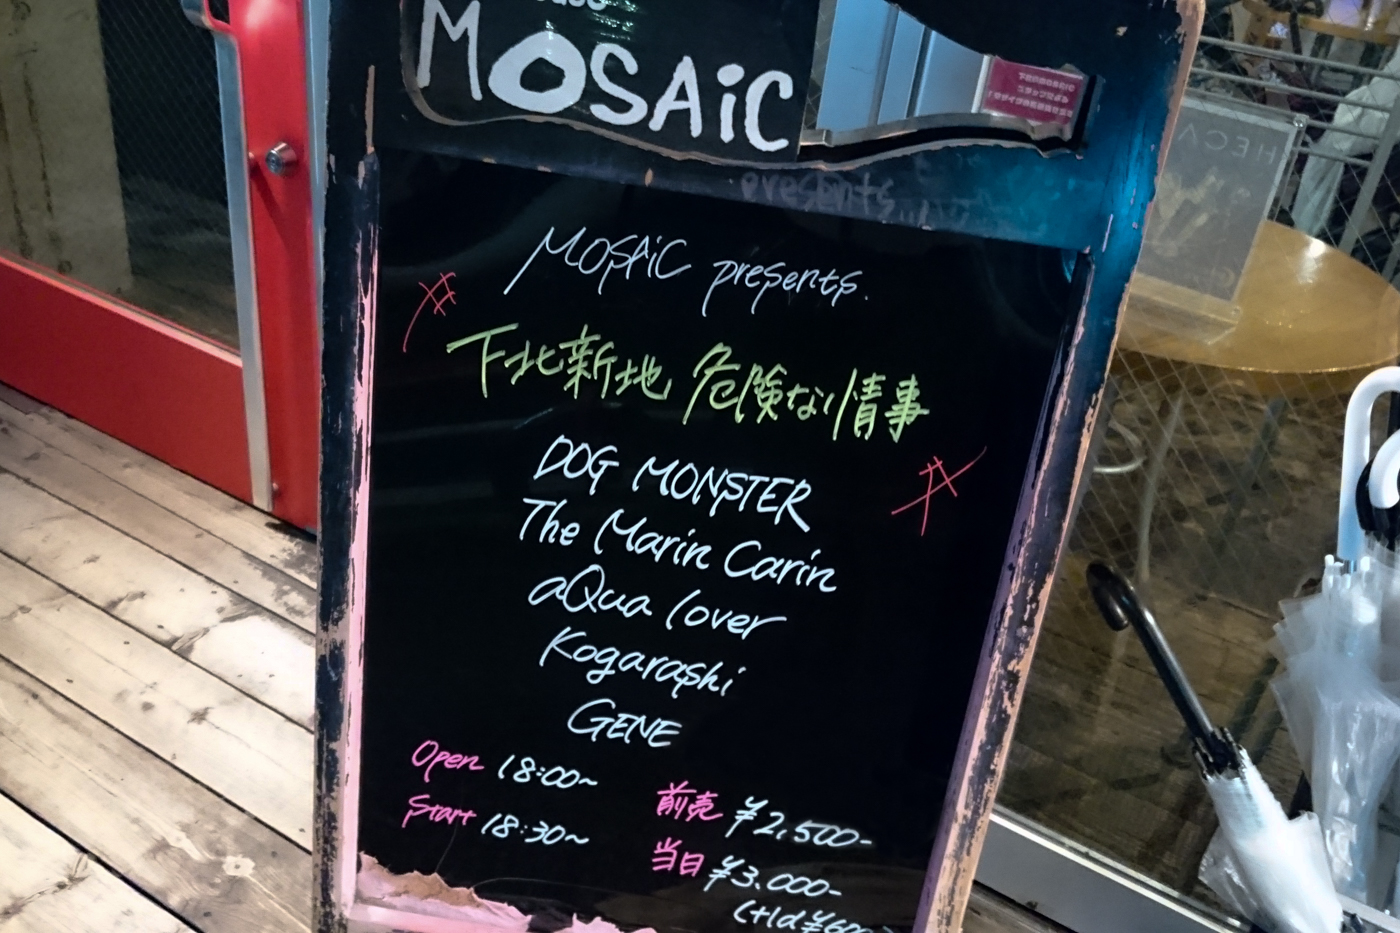 MOSAiC
presents
MOSAiC presents.
下北新地 危険な情事
DOG MONSTER
The Marin Carin
aQua lover
Kogarashi
GENE
Open 18:00~
Start 18:30~
前売 ¥2,500-
当日 ¥3.000-
(+1d ¥600
HECA